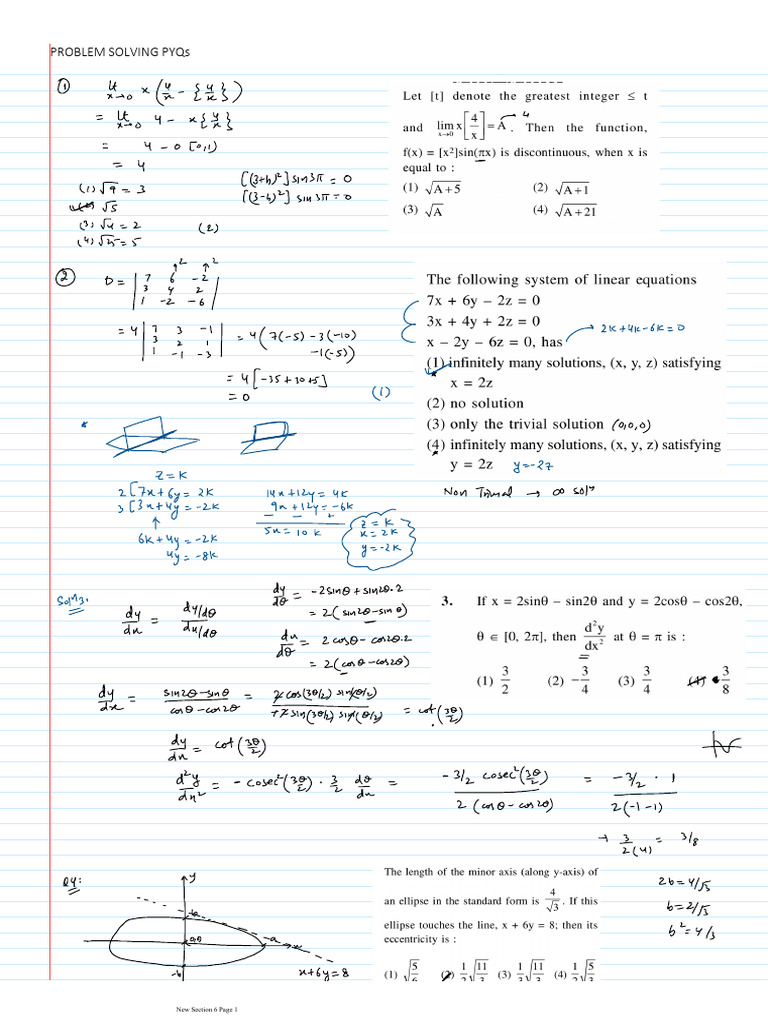 PROBLEM SOLVING PYQs
① lt x→0 x (4/x - {4/x})
= lt x→0 4 - x{4/x}
= 4 - 0 [0,1)
= 4
(1) √9 = 3
(2) √5
(3) √4 = 2
(4) √25 = 5
[(3+h)²] sin3π = 0
[(3-h)²] sin3π = 0
(2)
Let [t] denote the greatest integer ≤ t
and lim x→0 x[4/x] = A. Then the function, 4
f(x) = [x²]sin(πx) is discontinuous, when x is
equal to :
(1) √A+5 (2) √A+1
(3) √A (4) √A+21
② D = | 7 6 -2 | 2 2
| 3 4 2 |
| 1 -2 -6 |
= 4 | 7 3 -1 | = 4 ( 7(-5) - 3(-10)
| 3 2 1 | -1(-5) )
| 1 -1 -3 |
= 4 [-35 + 30 + 5]
= 0 (1)
*
z = k
2 [7x + 6y = 2k
3 [3x + 4y = -2k
6k + 4y = -2k
4y = -8k
14x + 12y = 4k
9x + 12y = -6k
- - +
5x = 10k
z = k
x = 2k
y = -2k
The following system of linear equations
7x + 6y – 2z = 0
3x + 4y + 2z = 0
x – 2y – 6z = 0, has
2k + 4k - 6k = 0
(1) infinitely many solutions, (x, y, z) satisfying
x = 2z
(2) no solution
(3) only the trivial solution (0,0,0)
(4) infinitely many solutions, (x, y, z) satisfying
y = 2z y = -2z
Non Trivial → ∞ solⁿ
Solⁿ3.
dy/dx = (dy/dθ)/(dx/dθ)
dy/dθ = -2sinθ + sin2θ.2
= 2(sin2θ - sinθ)
dx/dθ = 2cosθ - cos2θ.2
= 2(cosθ - cos2θ)
3. If x = 2sinθ – sin2θ and y = 2cosθ – cos2θ,
θ ∈ [0, 2π], then d²y/dx² at θ = π is :
(1) 3/2 (2) –3/4 (3) 3/4 (4) 3/8
dy/dx = (sin2θ - sinθ)/(cosθ - cos2θ) = (2cos(3θ/2) sin(θ/2))/(+2sin(3θ/2) sin(θ/2)) = cot(3θ/2)
dy/dx = cot(3θ/2)
d²y/dx² = -cosec²(3θ/2) · 3/2 dθ/dx = (-3/2 cosec²(3θ/2))/(2(cosθ - cos2θ)) = (-3/2 · 1)/(2(-1-1))
→ 3/(2(4)) = 3/8
Q4:
y
b
(0,0)
a
x
-b
x+6y=8
The length of the minor axis (along y-axis) of
an ellipse in the standard form is 4/√3. If this
ellipse touches the line, x + 6y = 8; then its
eccentricity is :
(1) √5/6 (2) 1/2√11/3 (3) 1/3√11/3 (4) 1/2√5/3
2b = 4/√3
b = 2/√3
b² = 4/3
New Section 6 Page 1